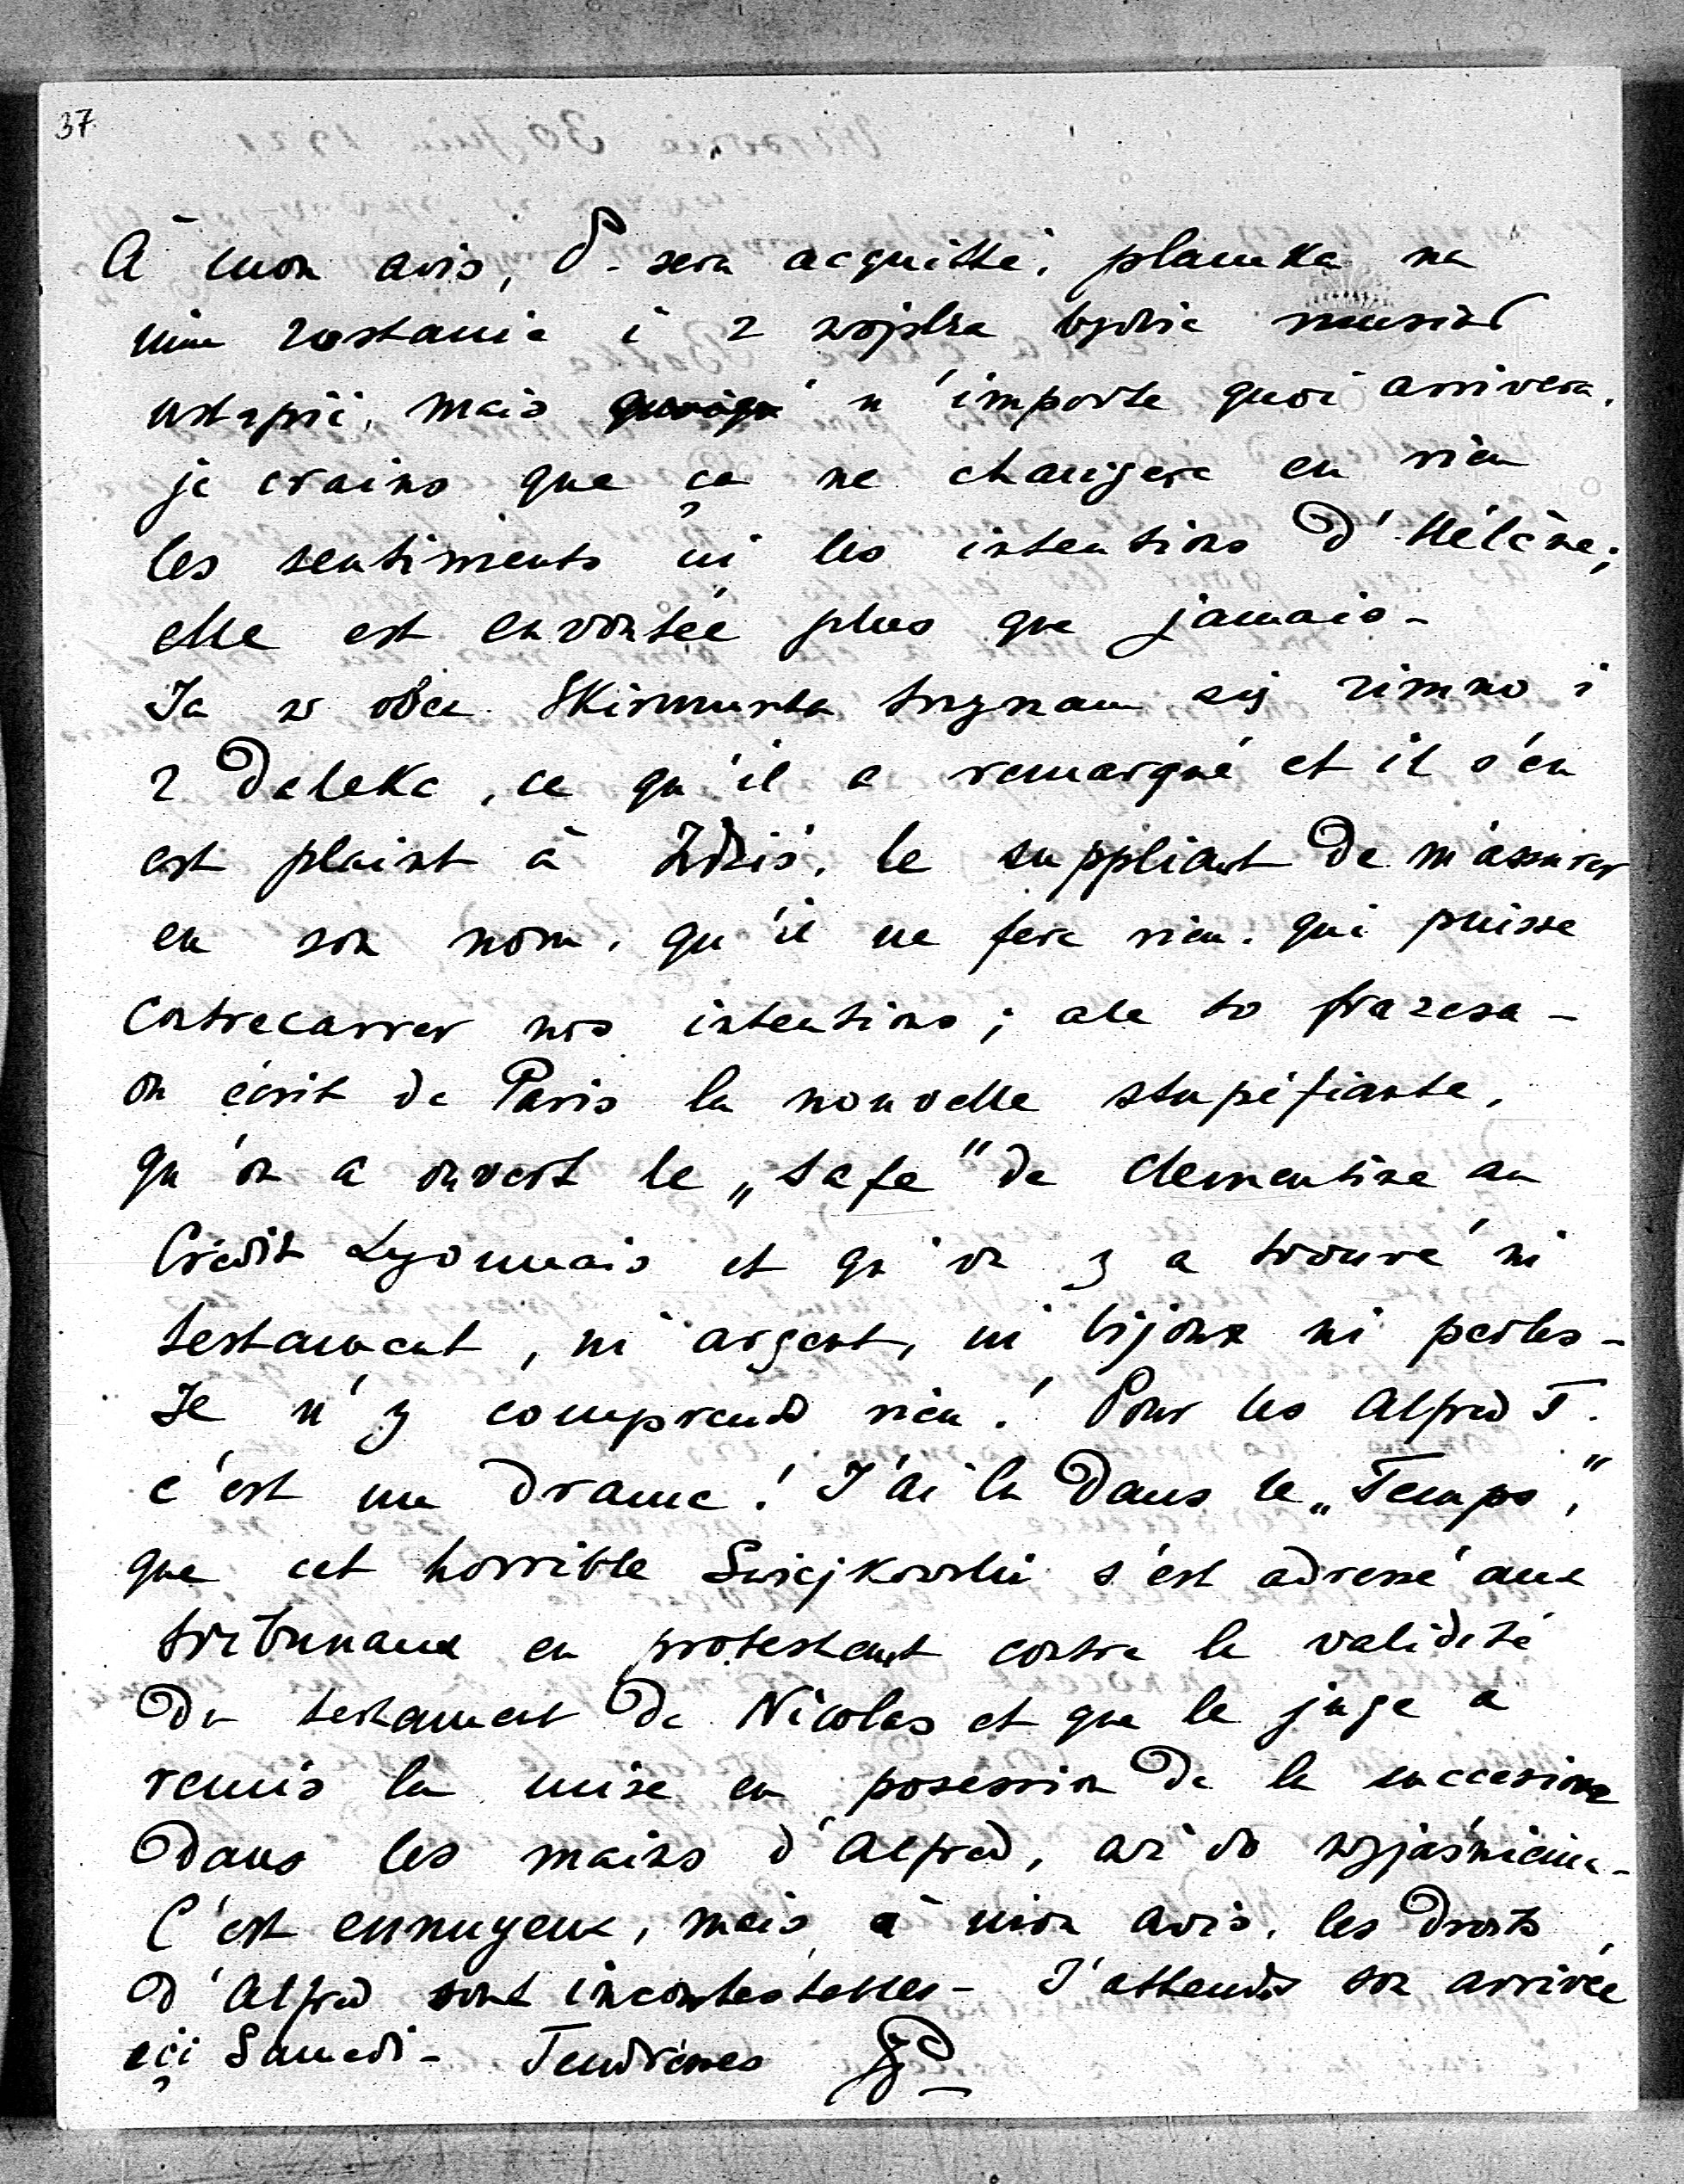 37.
À mon avis, P. sera acquitté, plamka na
nim zostanie i z wojska będzie musiał
ustąpić, mais n'importe quoi arrivera,
je crains que ça ne changera en rien
les sentiments ni les intentions d'Hélène;
elle est envoutée plus que jamais -
Ja w obec Skirmunta trzymam się zimno i
z daleka, ce qu'il a remarqué et il s'en
est plaint à Zdziś, le suppliant de m'assurer
en son nom, qu'il ne fera rien, qui puisse
contrecarrer nos intentions; ale to frazesa -
on écrit de Paris la nouvelle stupéfiante,
qu'on a ouvert le „safe" de Clementine au
Crédit Lyonnais et qu'on y a trouvé ni
testament, ni argent, ni bijoux ni perles -
Je n'y comprends rien! Pour les Alfred T.
c'est un drame! J'ai lu dans le „Temps",
que cet horrible Swiejkowski s'est adressé aux
tribunaux en protestant contre la validité
du testament de Nicolas et que le juge a
remis la mise en posession de la succesion
dans les mains d'Alfred, aż do wyjaśnienia -
C'est ennuyeux, mais à mon avis, les droits
d'Alfred sont incontestables - J'attends son arrivée
içi Samedi - Tendresses